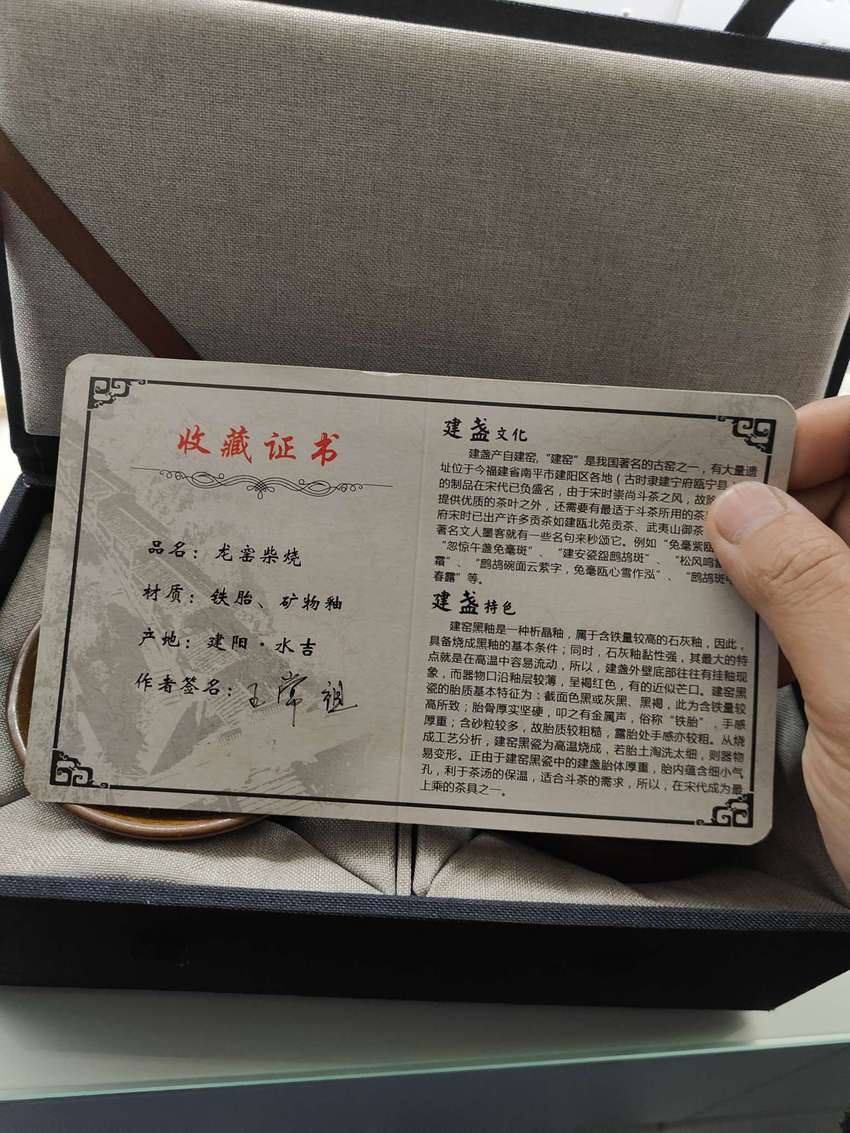 收藏证书
品名：龙窑柴烧
材质：铁胎、矿物釉
产地：建阳·水吉
作者签名：王常祖
建盏文化
建盏产自建窑，“建窑”是我国著名的古窑之一，有大量遗
址位于今福建省南平市建阳区各地（古时隶建宁府瓯宁县
的制品在宋代已负盛名，由于宋时崇尚斗茶之风，故除
提供优质的茶叶之外，还需要有最适于斗茶所用的茶
府宋时已出产许多贡茶如建瓯北苑贡茶、武夷山御茶
著名文人墨客就有一些名句来秒颂它。例如“兔毫紫瓯
“忽惊午盏兔毫斑”、“建安瓷盌鹧鸪斑”、“松风鸣
霜”、“鹧鸪碗面云萦字，兔毫瓯心雪作泓”、“鹧鸪斑
春露”等。
建盏特色
建窑黑釉是一种析晶釉，属于含铁量较高的石灰釉，因此，
具备烧成黑釉的基本条件；同时，石灰釉黏性强，其最大的特
点就是在高温中容易流动，所以，建盏外壁底部往往有挂釉现
象，而器物口沿釉层较薄，呈褐红色，有的近似芒口。建窑黑
瓷的胎质基本特征为；截面色黑或灰黑、黑褐，此为含铁量较
高所致；胎骨厚实坚硬，叩之有金属声，俗称“铁胎”，手感
厚重；含砂粒较多，故胎质较粗糙，露胎处手感亦较粗。从烧
成工艺分析，建窑黑瓷为高温烧成，若胎土淘洗太细，则器物
易变形。正由于建窑黑瓷中的建盏胎体厚重，胎内蕴含细小气
孔，利于茶汤的保温，适合斗茶的需求，所以，在宋代成为最
上乘的茶具之一。